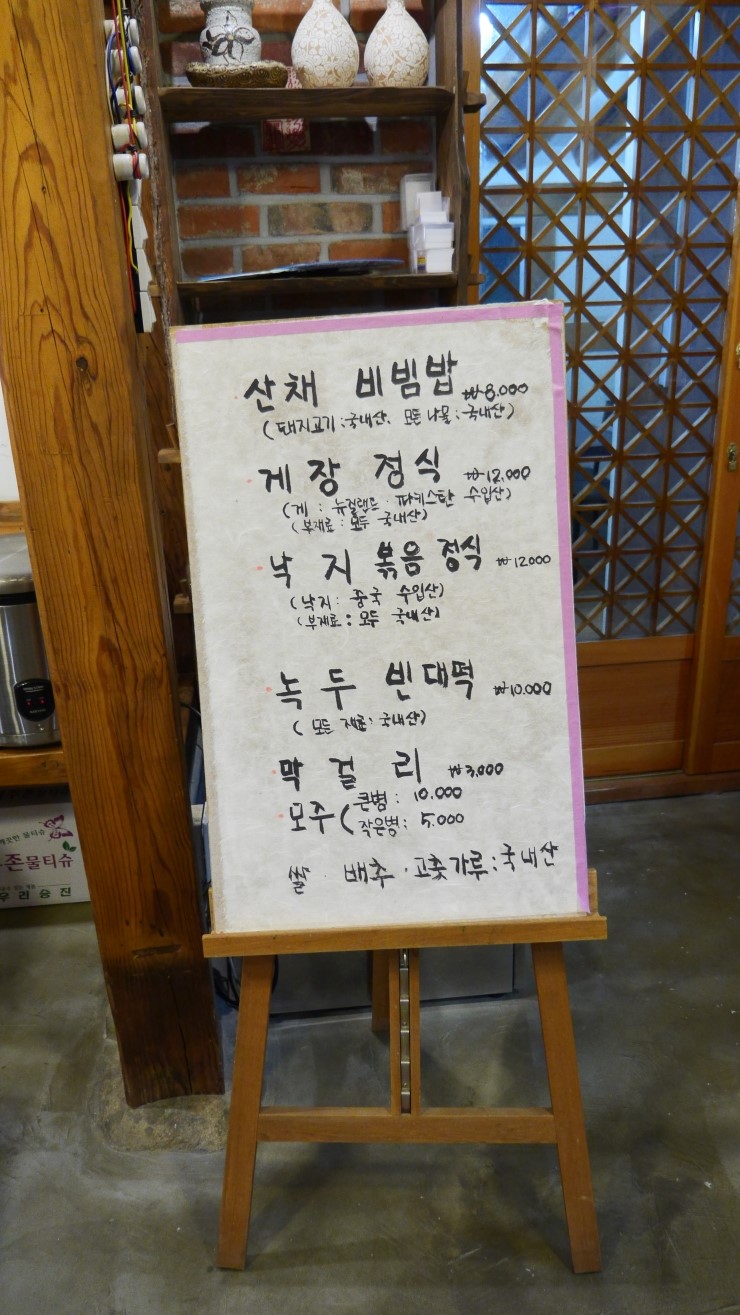 산채 비빔밥 ₩8.000
(돼지고기:국내산, 모든 나물:국내산)
게장 정식 ₩12,000
(게: 뉴질랜드·파키스탄 수입산)
(부재료: 모두 국내산)
낙지볶음 정식 ₩12000
(낙지: 중국 수입산)
(부재료: 모두 국내산)
녹두 빈대떡 ₩10.000
(모든 재료: 국내산)
막걸리 ₩3,000
모주( 큰병: 10.000
작은병: 5.000
쌀·배추·고춧가루:국내산
존물티슈
우리웅진